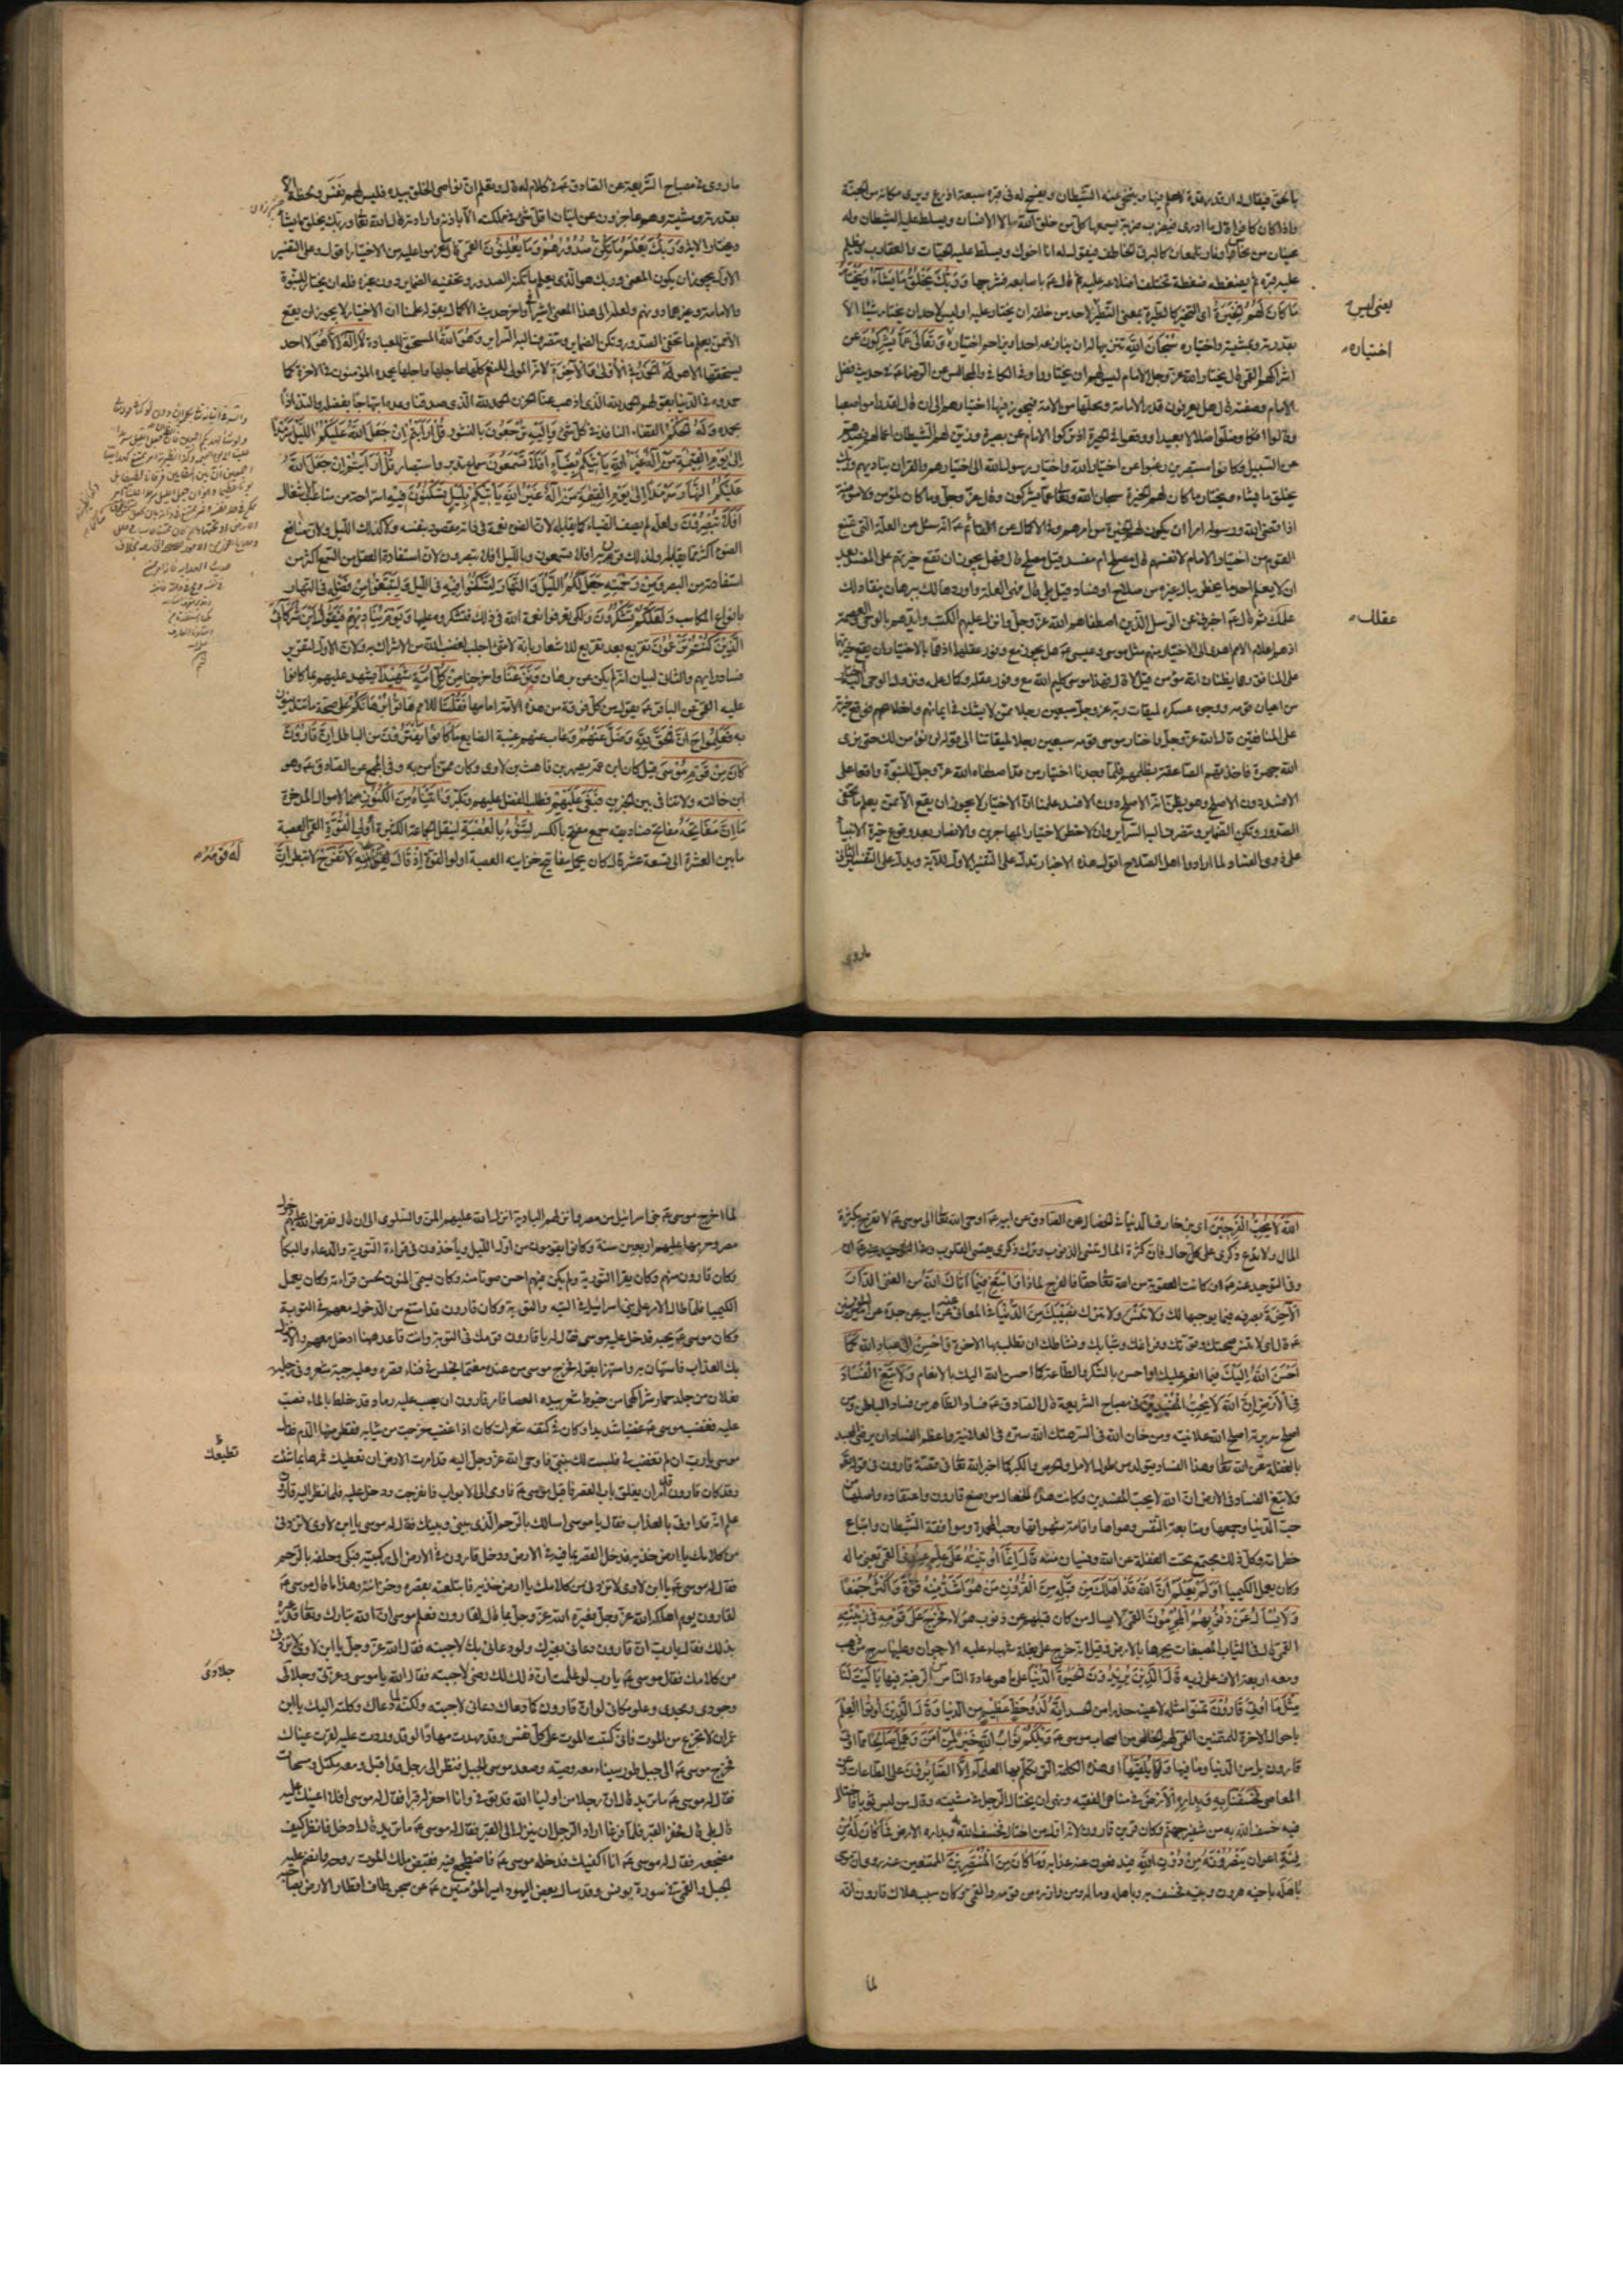 بالحق فيقال له ارقد رقدة لا حلم فيها ويتنحى عنه الشيطان ويفسح له في قبره سبعة اذرع ويرى مكانه من الجنة
واذا كان كافرا قال ما ادرى فيضرب ضربة يسمعها كل من خلق الله الا الانسان ويسلط عليه الشيطان وله
عينان من نحاس او نار تلمعان كالبرق الخاطف فيقول له انا اخوك ويسلط عليه الحيات والعقارب ويظلم
عليه قبره ثم يضغطه ضغطة تختلف اضلاعه عليه ثم قال باصابعه فشرجها وَرَبُّكَ يَخْلُقُ مَا يَشَاءُ وَيَخْتَارُ
مَا كَانَ لَهُمُ الْخِيَرَةُ اى التخير كالطيرة بمعنى التطير لاحد من خلقه ان يختار عليه اوليس لاحد ان يختار شيئا الا
بقدرته وبمشيته واختياره سُبْحَانَ اللَّهِ تنزيها له ان ينازعه احد او يزاحم اختياره وَتَعَالَى عَمَّا يُشْرِكُونَ عن
اشراكهم القمى قال يختار الله عز وجل الامام ليس لهم ان يختاروا وفى الكافى والمجالس عن الرضا ع فى حديث فضل
الامام وصفته قال هل يعرفون قدر الامامة ومحلها من الامة فيجوز فيها اختيارهم الى ان قال لقد راموا صعبا
وقالوا افكا وضلوا ضلالا بعيدا ووقعوا فى الحيرة اذ تركوا الامام عن بصيرة وزين لهم الشيطان اعمالهم فصدهم
عن السبيل وكانوا مستبصرين رغبوا عن اختيار الله واختيار رسول الله الى اختيارهم والقران يناديهم وربك
يخلق ما يشاء ويختار ما كان لهم الخيرة سبحان الله وتعالى عما يشركون وقال عز وجل وما كان لمؤمن ولا مؤمنة
اذا قضى الله ورسوله امرا ان يكون لهم الخيرة من امرهم وفى الاكمال عن القائم ع انه سئل عن العلة التى تمنع
القوم من اختيار الامام لانفسهم قال مصلح ام مفسد قيل مصلح قال فهل يجوز ان تقع خيرتهم على المفسد بعد
ان لا يعلم احد ما يخطر ببال غيره من صلاح او فساد قيل بلى قال فهى العلة واوردها لك ببرهان ينقاد لك
عقلك ثم قال ع اخبرنى عن الرسل الذين اصطفاهم الله عز وجل وانزل عليهم الكتب وايدهم بالوحى والعصمة
اذ هم اعلام الامم اهدى الى الاختيار منهم مثل موسى وعيسى ع هل يجوز مع وفور عقلهما اذ هما بالاختيار ان يقع خيرتهما
على المنافق وهما يظنان انه مؤمن قيل لا قال فهذا موسى كليم الله مع وفور عقله وكمال علمه ونزول الوحى عليه اختار
من اعيان قومه ووجوه عسكره لميقات ربه عز وجل سبعين رجلا ممن لا يشك فى ايمانهم واخلاصهم فوقع خيرته
على المنافقين قال الله عز وجل واختار موسى قومه سبعين رجلا لميقاتنا الى قوله لن نؤمن لك حتى نرى
الله جهرة فاخذتهم الصاعقة بظلمهم فلما وجدنا اختيار من قد اصطفاه الله عز وجل للنبوة واقعا على
الافسد دون الاصلح وهو يظن انه الاصلح دون الافسد علمنا ان الاختيار لا يجوز ان يقع الا ممن يعلم ما تخفى
الصدور وتكن الضماير وتنصرف اليه السراير وان لا خطر لاختيار المهاجرين والانصار بعد وقوع خيرة الانبياء
على ذوى الفساد لما ارادوا اهل الصلاح اقول هذه الاخبار تدل على التفسير الاول للاية ويدل على التفسير الثانى
يعنى ليس
اختياره
عقلك
ماروى
ماروى فى مصباح الشريعة عن الصادق ع فى كلام له قال وتعلم ان نواصى الخلق بيده فليس لهم نفس ولحظة الا
بقدرته ومشيته وهم عاجزون عن اتيان اقل شىء فى مملكته الا باذنه وارادته قال الله تعالى وربك يخلق ما يشاء
ويختار الاية وَرَبُّكَ يَعْلَمُ مَا تُكِنُّ صُدُورُهُمْ وَمَا يُعْلِنُونَ القمى قال ما عزموا عليه من الاختيار اقول وعلى التفسير
الاول يجوز ان يكون المعنى وربك هو الذى يعلم ما تكنه الصدور وتخفيه الضماير دون غيره فله ان يختار للنبوة
والامامة وغيرهما دونهم ولعله الى هذا المعنى اشير فى اخر حديث الاكمال بقوله علمنا ان الاختيار لا يجوز ان يقع
الا ممن يعلم ما تخفى الصدور وتكن الضماير وتنصرف اليه السراير وَهُوَ اللَّهُ المستحق للعبادة لَا إِلَهَ إِلَّا هُوَ لا احد
يستحقها الا هو لَهُ الْحَمْدُ فِي الْأُولَى وَالْآخِرَةِ لانه المولى للنعم كلها عاجلها واجلها يحمده المؤمنون فى الاخرة كما
حمدوه فى الدنيا بقولهم الحمد لله الذى اذهب عنا الحزن الحمد لله الذى صدقنا وعده ابتهاجا بفضله والتذاذا
بحمده وَلَهُ الْحُكْمُ القضاء النافذ فى كل شىء وَإِلَيْهِ تُرْجَعُونَ بالنشور قُلْ أَرَأَيْتُمْ إِنْ جَعَلَ اللَّهُ عَلَيْكُمُ اللَّيْلَ سَرْمَدًا
إِلَى يَوْمِ الْقِيمَةِ مَنْ إِلَهٌ غَيْرُ اللَّهِ يَأْتِيكُمْ بِضِيَاءٍ أَفَلَا تَسْمَعُونَ سماع تدبر واستبصار قُلْ أَرَأَيْتُمْ إِنْ جَعَلَ اللَّهُ
عَلَيْكُمُ النَّهَارَ سَرْمَدًا إِلَى يَوْمِ الْقِيمَةِ مَنْ إِلَهٌ غَيْرُ اللَّهِ يَأْتِيكُمْ بِلَيْلٍ تَسْكُنُونَ فِيهِ استراحة من متاعب الاشغال
أَفَلَا تُبْصِرُونَ ولعله لم يصف الضياء بما يقابله لان الضوء نعمة فى ذاته مقصود بنفسه ولا كذلك الليل ولان منافع
الضوء اكثر مما يقابله ولذلك قرن به افلا تسمعون وبالليل افلا تبصرون لان استفادة العقل من السمع اكثر من
استفادته من البصر وَمِنْ رَحْمَتِهِ جَعَلَ لَكُمُ اللَّيْلَ وَالنَّهَارَ لِتَسْكُنُوا فِيهِ فى الليل وَلِتَبْتَغُوا مِنْ فَضْلِهِ فى النهار
بانواع المكاسب وَلَعَلَّكُمْ تَشْكُرُونَ ولكى تعرفوا نعمة الله فى ذلك فتشكروه عليها وَيَوْمَ يُنَادِيهِمْ فَيَقُولُ أَيْنَ شُرَكَائِيَ
الَّذِينَ كُنْتُمْ تَزْعُمُونَ تقريع بعد تقريع للاشعار بانه لا شىء اجلب لغضب الله من الاشراك به ولان الاول لتقرير
فساد رايهم والثانى لبيان انه لم يكن عن برهان وَنَزَعْنَا واخرجنا مِنْ كُلِّ أُمَّةٍ شَهِيدًا يشهد عليهم بما كانوا
عليه القمى عن الباقر ع يقول من كل فرقة من هذه الامة امامها فَقُلْنَا للامم هَاتُوا بُرْهَانَكُمْ على صحة ما تتدينون
به فَعَلِمُوا حينئذ أَنَّ الْحَقَّ لِلَّهِ وَضَلَّ عَنْهُمْ وغاب عنهم غيبة الضايع مَا كَانُوا يَفْتَرُونَ من الباطل إِنَّ قَارُونَ
كَانَ مِنْ قَوْمِ مُوسَى قيل كان ابن عمه يصهر بن قاهث بن لاوى وكان ممن امن به وفى المجمع عن الصادق ع وهو
ابن خالته ولا تنافى بين الخبرين فَبَغَى عَلَيْهِمْ فطلب الفضل عليهم وتكبر وَآتَيْنَاهُ مِنَ الْكُنُوزِ من الاموال المدخرة
مَا إِنَّ مَفَاتِحَهُ مفاتح صناديقه جمع مفتح بالكسر لَتَنُوءُ بِالْعُصْبَةِ لتثقل الجماعة الكثيرة أُولِي الْقُوَّةِ القمى العصبة
ما بين العشرة الى تسعة عشر قال كان يحمل مفاتيح خزاينه العصبة اولو القوة إِذْ قَالَ لَهُ قَوْمُهُ لَا تَفْرَحْ لا تبطر إِنَّ
لَهُ قَوْمُهُ
اللَّهَ لَا يُحِبُّ الْفَرِحِينَ اى بزخارف الدنيا فى الخصال عن الصادق عن ابيه ع اوحى الله تعالى الى موسى ع لا تفرح بكثرة
المال ولا تدع ذكرى على كل حال فان كثرة المال تنسى الذنوب وترك ذكرى يقسى القلوب
وفى التوحيد عنه ع ان كانت العقوبة من الله تعالى حقا فالفرح لماذا وَابْتَغِ فِيمَا آتَاكَ اللَّهُ من الغنى الدَّارَ
الْآخِرَةَ بصرفه فيما يوجبها لك وَلَا تَنْسَ ولا تترك نَصِيبَكَ مِنَ الدُّنْيَا فى المعانى عنه عن ابيه عن جده عن امير المؤمنين
ع قال اى لا تنس صحتك وقوتك وفراغك وشبابك ونشاطك ان تطلب بها الاخرة وَأَحْسِنْ الى عباد الله كَمَا
أَحْسَنَ اللَّهُ إِلَيْكَ فيما انعم عليك او احسن بالشكر والطاعة كما احسن الله اليك بالانعام وَلَا تَبْغِ الْفَسَادَ
فِي الْأَرْضِ إِنَّ اللَّهَ لَا يُحِبُّ الْمُفْسِدِينَ فى مصباح الشريعة قال الصادق ع فساد الظاهر من فساد الباطن ومن
اصلح سريرته اصلح الله علانيته ومن خان الله فى السر هتك الله ستره فى العلانية واعظم الفساد ان يرضى العبد
بالغفلة عن الله تعالى وهذا الفساد يتولد من طول الامل والحرص والكبر كما اخبر الله تعالى فى قصة قارون فى قوله
ولا تبغ الفساد فى الارض ان الله لا يحب المفسدين وكانت هذه الخصال من صنع قارون واعتقاده واصلها من
حب الدنيا وجمعها ومتابعة النفس وهواها واقامة شهواتها وحب المحمدة وموافقة الشيطان واتباع
خطراته وكل ذلك مجتمع تحت الغفلة عن الله ونسيان مننه قَالَ إِنَّمَا أُوتِيتُهُ عَلَى عِلْمٍ عِنْدِي القمى يعنى ماله
وكان يعمل الكيميا أَوَلَمْ يَعْلَمْ أَنَّ اللَّهَ قَدْ أَهْلَكَ مِنْ قَبْلِهِ مِنَ الْقُرُونِ مَنْ هُوَ أَشَدُّ مِنْهُ قُوَّةً وَأَكْثَرُ جَمْعًا
وَلَا يُسْأَلُ عَنْ ذُنُوبِهِمُ الْمُجْرِمُونَ القمى لا يسال من كان قبلهم عن ذنوب هؤلاء فَخَرَجَ عَلَى قَوْمِهِ فِي زِينَتِهِ
القمى قال فى الثياب المصبغات يجرها بالارض قيل انه خرج على بغلة شهباء عليه الارجوان وعليها سرج من ذهب
ومعه اربعة الاف على زيه قَالَ الَّذِينَ يُرِيدُونَ الْحَيوةَ الدُّنْيَا على ما هو عادة الناس من الرغبة فيها يَا لَيْتَ لَنَا
مِثْلَ مَا أُوتِيَ قَارُونُ تمنوا مثله لا عينه حذرا من الحسد إِنَّهُ لَذُو حَظٍّ عَظِيمٍ من الدنيا وَقَالَ الَّذِينَ أُوتُوا الْعِلْمَ
باحوال الاخرة للمتمنين القمى هم الخلص من اصحاب موسى ع وَيْلَكُمْ ثَوَابُ اللَّهِ خَيْرٌ لِمَنْ آمَنَ وَعَمِلَ صَالِحًا مما اوتى
قارون بل من الدنيا وما فيها وَلَا يُلَقَّاهَا اى هذه الكلمة التى تكلم بها العلماء إِلَّا الصَّابِرُونَ على الطاعات وعن
المعاصى فَخَسَفْنَا بِهِ وَبِدَارِهِ الْأَرْضَ فى مناهى الفقيه ونهى ان يختال الرجل فى مشيته وقال من لبس ثوبا فاختال
فيه خسف الله به من شفير جهنم وكان قرين قارون لانه اول من اختال فخسف الله به وبداره الارض فَمَا كَانَ لَهُ مِنْ
فِئَةٍ اعوان يَنْصُرُونَهُ مِنْ دُونِ اللَّهِ فيدفعون عنه عذابه وَمَا كَانَ مِنَ الْمُنْتَصِرِينَ الممتنعين عنه روى ان موسى
باهله باخيه هرون وبنيه فخسف به وباهله وماله ومن وازره من قومه والقمى وكان سبب هلاك قارون انه
لما
لما اخرج موسى ع بنى اسرائيل من مصر وانزلهم البادية انزل الله عليهم المن والسلوى الى ان قال ففرض الله عليهم دخول
مصر وحرمها عليهم اربعين سنة وكانوا يقومون من اول الليل وياخذون فى قراءة التورية والدعاء والبكاء
وكان قارون منهم وكان يقرا التورية ولم يكن فيهم احسن صوتا منه وكان يسمى المنون لحسن قراءته وكان يعمل
الكيميا فلما طال الامر على بنى اسرائيل فى التيه والتوبة وكان قارون قد امتنع من الدخول معهم فى التوبة
وكان موسى ع يحبه فدخل عليه موسى فقال له يا قارون قومك فى التوبة وانت قاعد ههنا ادخل معهم والا ينزل
بك العذاب فاستهان به واستهزا بقوله فخرج موسى من عنده مغتما فجلس فى فناء قصره وعليه جبة شعر وفى رجليه
نعلان من جلد حمار شراكهما من خيوط شعر بيده العصا فامر قارون ان يصب عليه رماد قد خلط بالماء فصب
عليه فغضب موسى ع غضبا شديدا وكان فى كتفه شعرات كان اذا غضب خرجت من ثيابه وقطر منها الدم فقال
موسى يا رب ان لم تغضب لى فلست لك بنبى فاوحى الله عز وجل اليه قد امرت الارض ان تطيعك فمرها بما شئت
وقد كان قارون قد امر ان يغلق باب القصر فاقبل موسى ع فاومى الى الابواب فانفرجت ودخل عليه فلما نظر اليه قارون
علم انه قد اوتى بالعذاب فقال يا موسى اسالك بالرحم الذى بينى وبينك فقال له موسى يا ابن لاوى لا تزدنى
من كلامك يا ارض خذيه فدخل القصر بما فيه فى الارض ودخل قارون فى الارض الى ركبتيه فبكى وحلفه بالرحم
فقال له موسى ع يا ابن لاوى لا تزدنى من كلامك يا ارض خذيه فابتلعته بقصره وخزائنه وهذا ما قال موسى ع
لقارون يوم اهلكه الله عز وجل فعيره الله عز وجل بما قال لقارون فعلم موسى ان الله تبارك وتعالى قد عيره
بذلك فقال يا رب ان قارون دعانى بغيرك ولو دعانى بك لاجبته فقال الله عز وجل يا ابن لاوى لا تزدنى
من كلامك فقال موسى ع يا رب لو علمت ان ذلك لك رضى لاجبته فقال الله يا موسى وعزتى وجلالى
وجودى ومجدى وعلو مكانى لو ان قارون كما دعاك دعانى لاجبته ولكنه لما دعاك وكلته اليك يا ابن
عمران لا تجزع من الموت فانى كتبت الموت على كل نفس وقد مهدت لك مهادا لو قد وردت عليه لقرت عيناك
فخرج موسى ع الى جبل طور سيناء مع وصيه وصعد موسى الجبل فنظر الى رجل قد اقبل ومعه مكتل ومسحاة
فقال له موسى ع ما تريد قال ان رجلا من اولياء الله قد توفى وانا احفر له قبرا فقال له موسى افلا اعينك عليه
قال بلى قال فحفرا القبر فلما فرغا اراد الرجل ان ينزل الى القبر فقال له موسى ع ما تريد قال ادخل فانظر كيف
مضجعه فقال له موسى ع انا اكفيك فدخله موسى ع فاضطجع فيه فقبض ملك الموت روحه وانضم عليه
الجبل والقمى فى سورة يونس وقد سال بعض اليهود امير المؤمنين ع عن سجن طاف اقطار الارض بصاحبه
تطيعك
جلالى